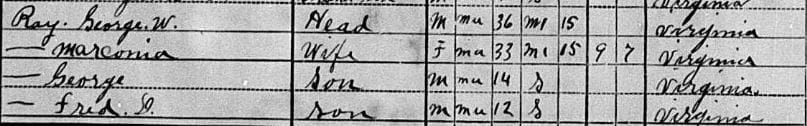 Virginia
Ray. George. W. Head M mu 36 M1 15 Virginia
— Marconia Wife F mu 33 M1 15 9 7 Virginia
— George Son M mu 14 S Virginia.
— Fred. D. Son M mu 12 S Virginia